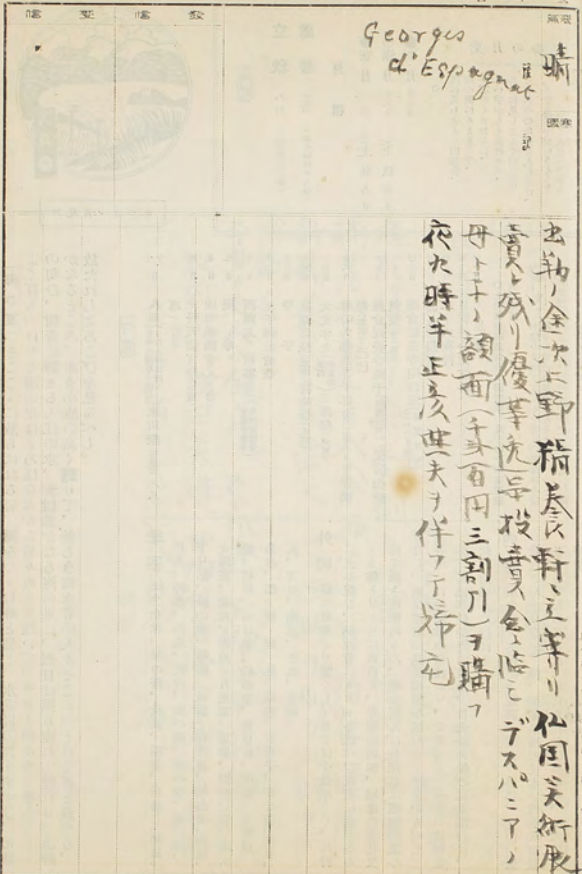 晴
Georges
d'Espagnat
出勤ノ途次上野精養軒ニ立寄リ仏国美術展
賣レ残リ優等売品投賣会ニ臨ミデスパニアノ
母ト子ノ額面(千弐百円三割引)ヲ購フ
夜九時半正彦典夫ヲ伴フテ帰宅
発信
受信